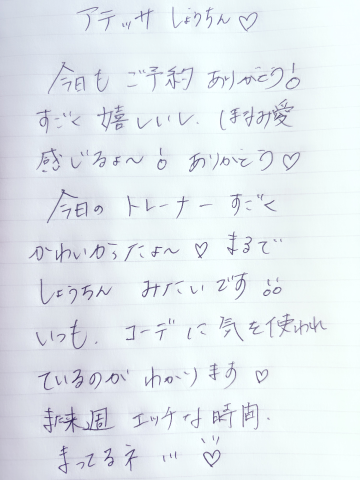 アテッサ しょうちん♡
今日も ご予約 ありがとう!
すごく 嬉しいし、ほなみ愛
感じるよ〜! ありがとう♡
今日の トレーナー すごく
かわいかったよ〜♡ まるで
しょうちん みたいです!!
いつも、コーデに気を使われ
ているのが わかります♡
また来週 エッチな時間、
まってるネ ...♡